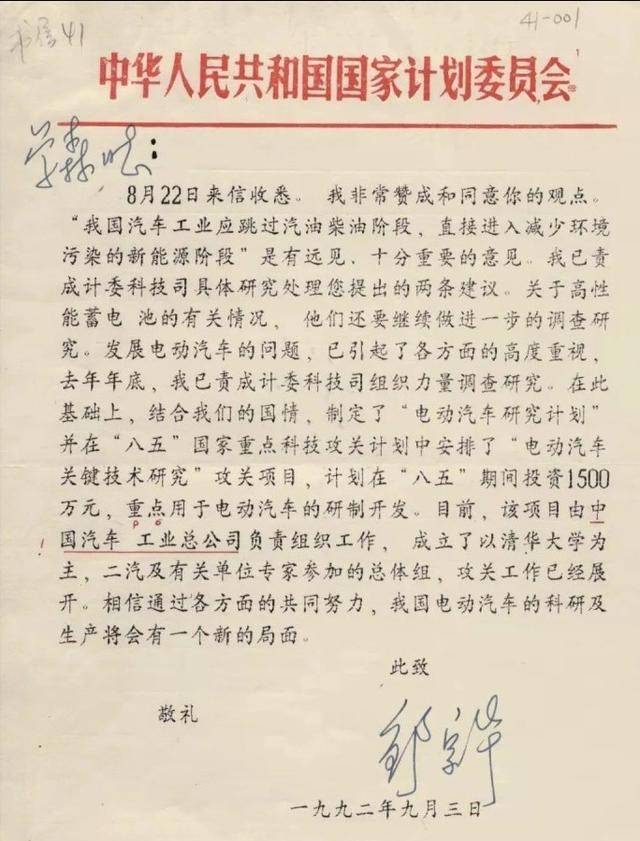 书房41
41-001
中华人民共和国国家计划委员会
学森同志：
8月22日来信收悉。我非常赞成和同意你的观点。
“我国汽车工业应跳过汽油柴油阶段，直接进入减少环境
污染的新能源阶段”是有远见、十分重要的意见。我已责
成计委科技司具体研究处理您提出的两条建议。关于高性
能蓄电 池的有关情况， 他们还要继续做进一步的调查研
究。发展电动汽车的问题，已引起了各方面的高度重视，
去年年底，我已责成计委科技司组织力量调查研究。在此
基础上，结合我们的国情，制定了“电动汽车研究计划”
并在“八五”国家重点科技攻关计划中安排了“电动汽车
关键技术研究”攻关项目，计划在“八五”期间投资1500
万元，重点用于电动汽车的研制开发。目前，该项目由中
国汽车 工业总公司负责组织工作， 成立了以清华大学为
主，二汽及有关单位专家参加的总体组，攻关工作已经展
开。相信通过各方面的共同努力，我国电动汽车的科研及
生产将会有一个新的局面。
此致
敬礼
邹家华
一九九二年九月三日